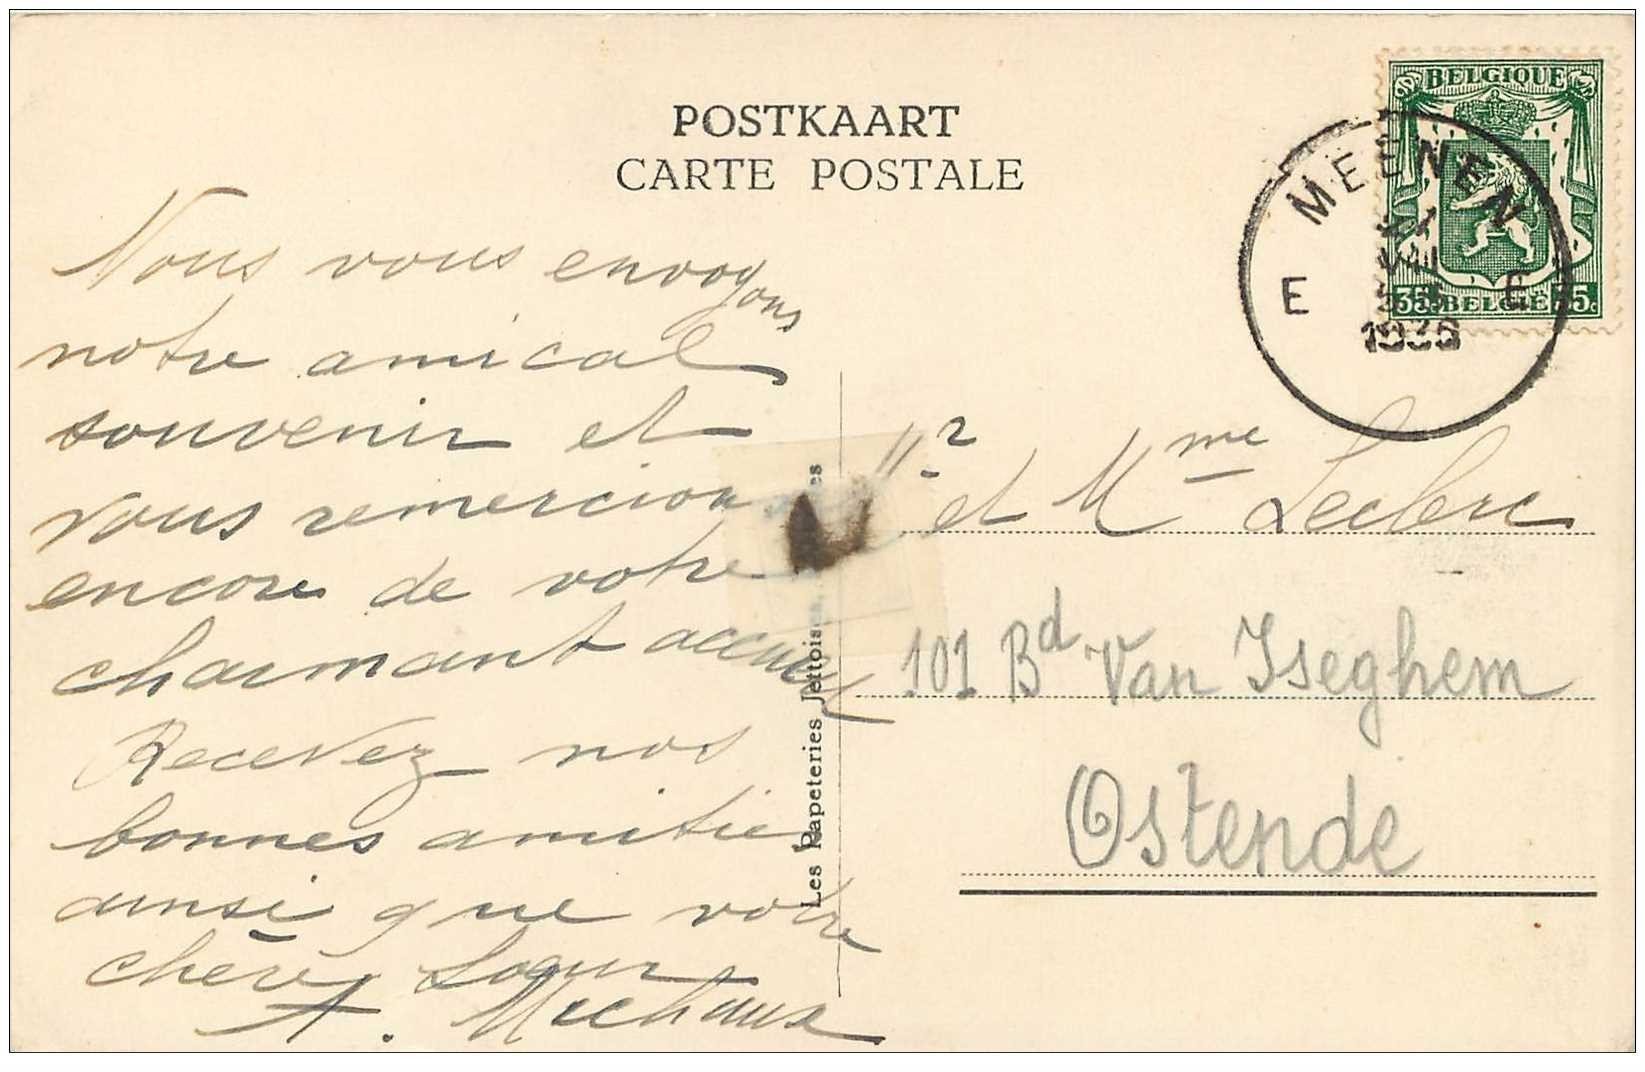 POSTKAART
CARTE POSTALE
BELGIQUE
35c BELGIË 35c
MEENEN
E E
1936
Nous vous envoyons
notre amical
souvenir et
vous remercions
encore de votre
charmant accueil
Recevez nos
bonnes amitiés
ainsi que votre
chère Soeur
A. Michaux
Les Papeteries Jettoises,
Mr et Mme Leclerc
101 Bd Van Iseghem
Ostende